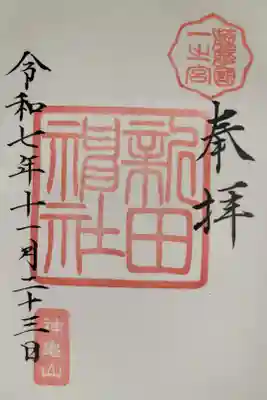 薩摩國
一之宮
奉拝
新田
神社
令和七年十一月二十三日
神龜山